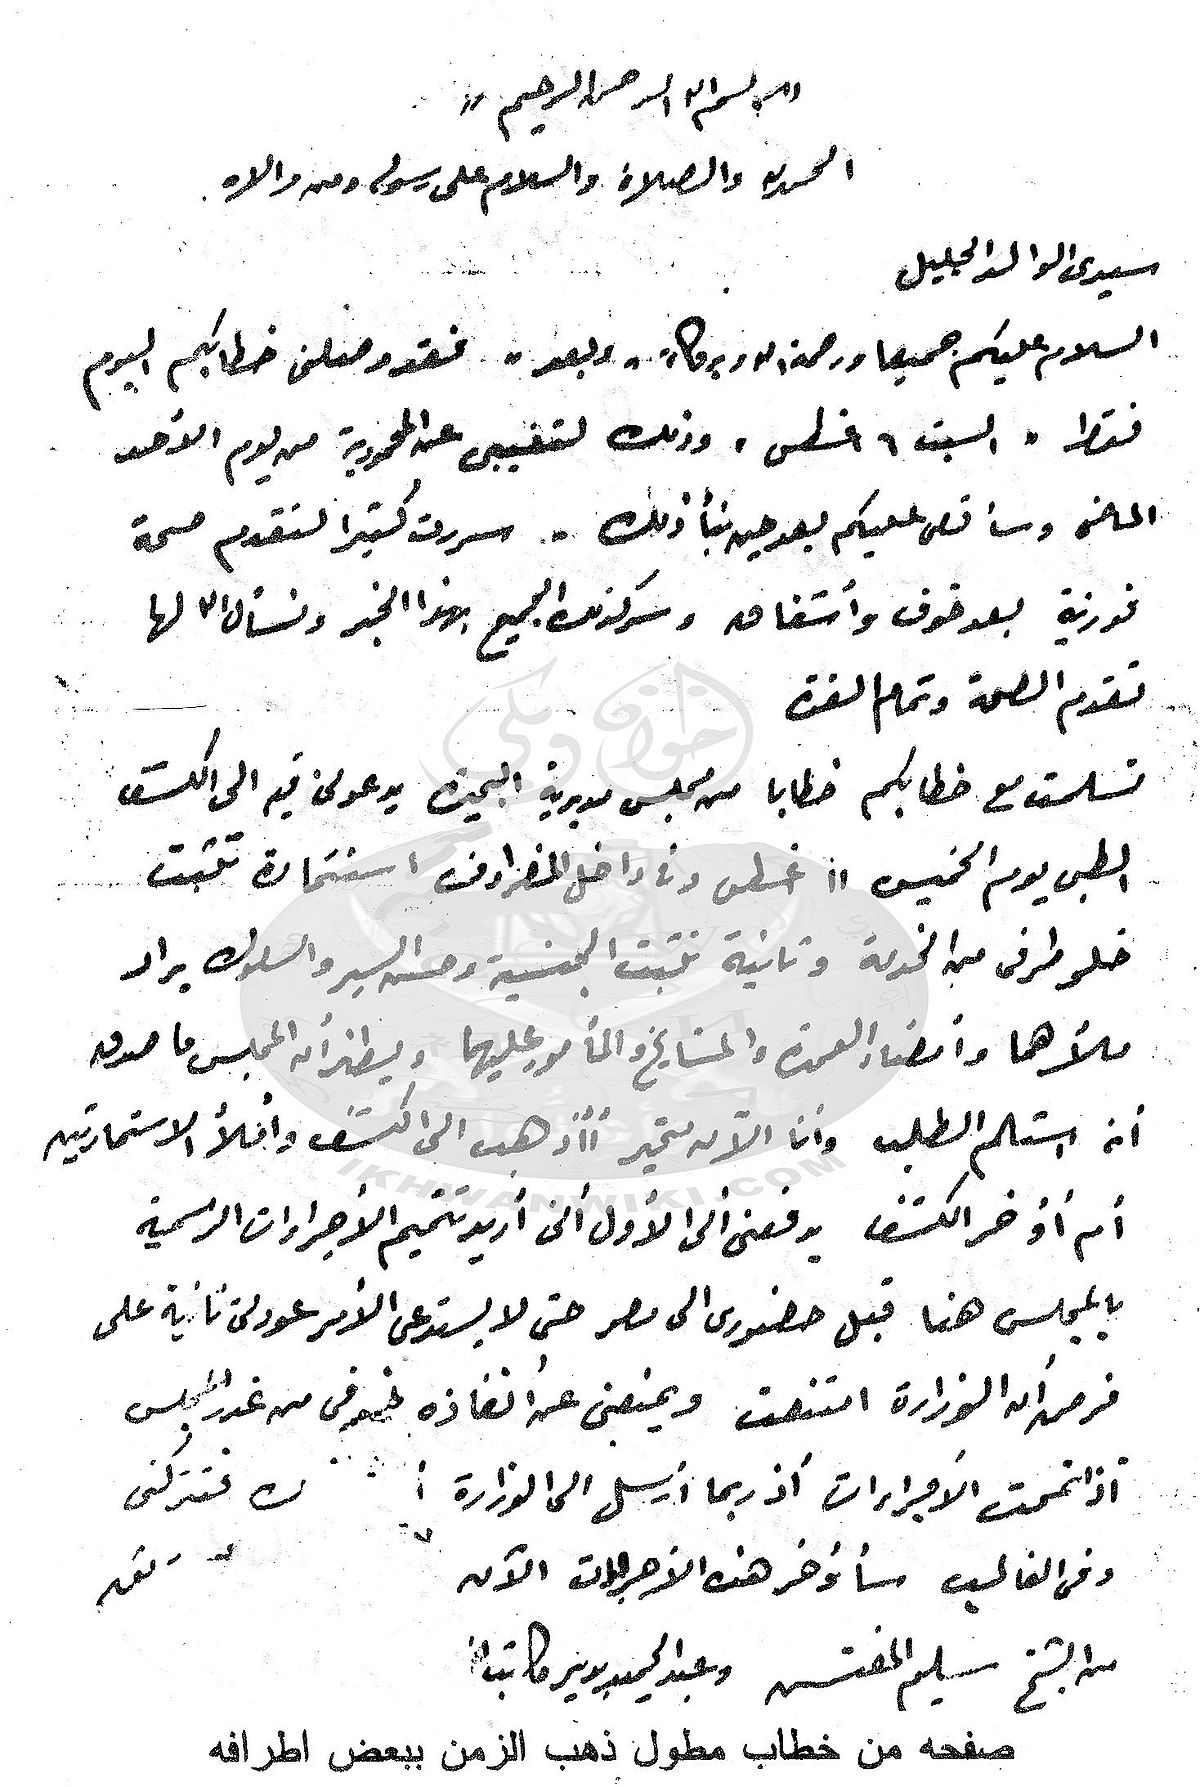 « بسم الله الرحمن الرحيم »
الحمد لله والصلاة والسلام على رسوله ومن والاه .
سيدى الوالد الجليل
السلام عليكم جميعا ورحمة الله وبركاته .. وبعد .. فقد وصلنى خطابكم اليوم
فقط . السبت ٦ غسطس . وذلك لتغيبى عن المحمودية من يوم الأحد
الماضى وسأقص عليكم بعد حين نبأ ذلك .. سررت كثيرا لتقدم صحة
فوزية بعد خوف واشفاق وسر كذلك الجميع بهذا الخبر ونسأل الله لها
تقدم الصحة وتمام
تسلمت مع خطابكم خطابا من مجلس مديرية البحيرة يدعونى فيه الى الكشف
الطبى يوم الخميس ١١ غسطس وفى داخل المظروف استمارة تثبت
خلو طرفى من الخدمة وثانية تثبت الجنسية وحسن السير والسلوك يراد
ملأهما وامضاء العمدة والمشايخ والمأمور عليها ويظهر أن المجلس ما صدق
أنه استلم الطلب وأنا الآن متحير أأذهب الى الكشف وأملأ الاستمارتين
أم أؤخر الكشف يدفعنى ألى الأول أنى أريد تتميم الأجراءات الرسمية
بالمجلس هنا قبل حضورى الى مصر حتى لا يستدعى الأمر عودتى ثانية على
فرض أن الوزارة امتنعت ويمنعنى عن أنفاذه خوفى من غدر المجلس
أذا تممت الأجراءات أذ ربما أرسل الى الوزارة فتتركنى
وفى الغالب سأؤخر هذه الأجراءات الآن
من الشيخ سليم المفتش وعبد الحميد بدير كاتب
صفحه من خطاب مطول ذهب الزمن ببعض اطرافه
خوان ويكي
IKHWANWIKI.COM